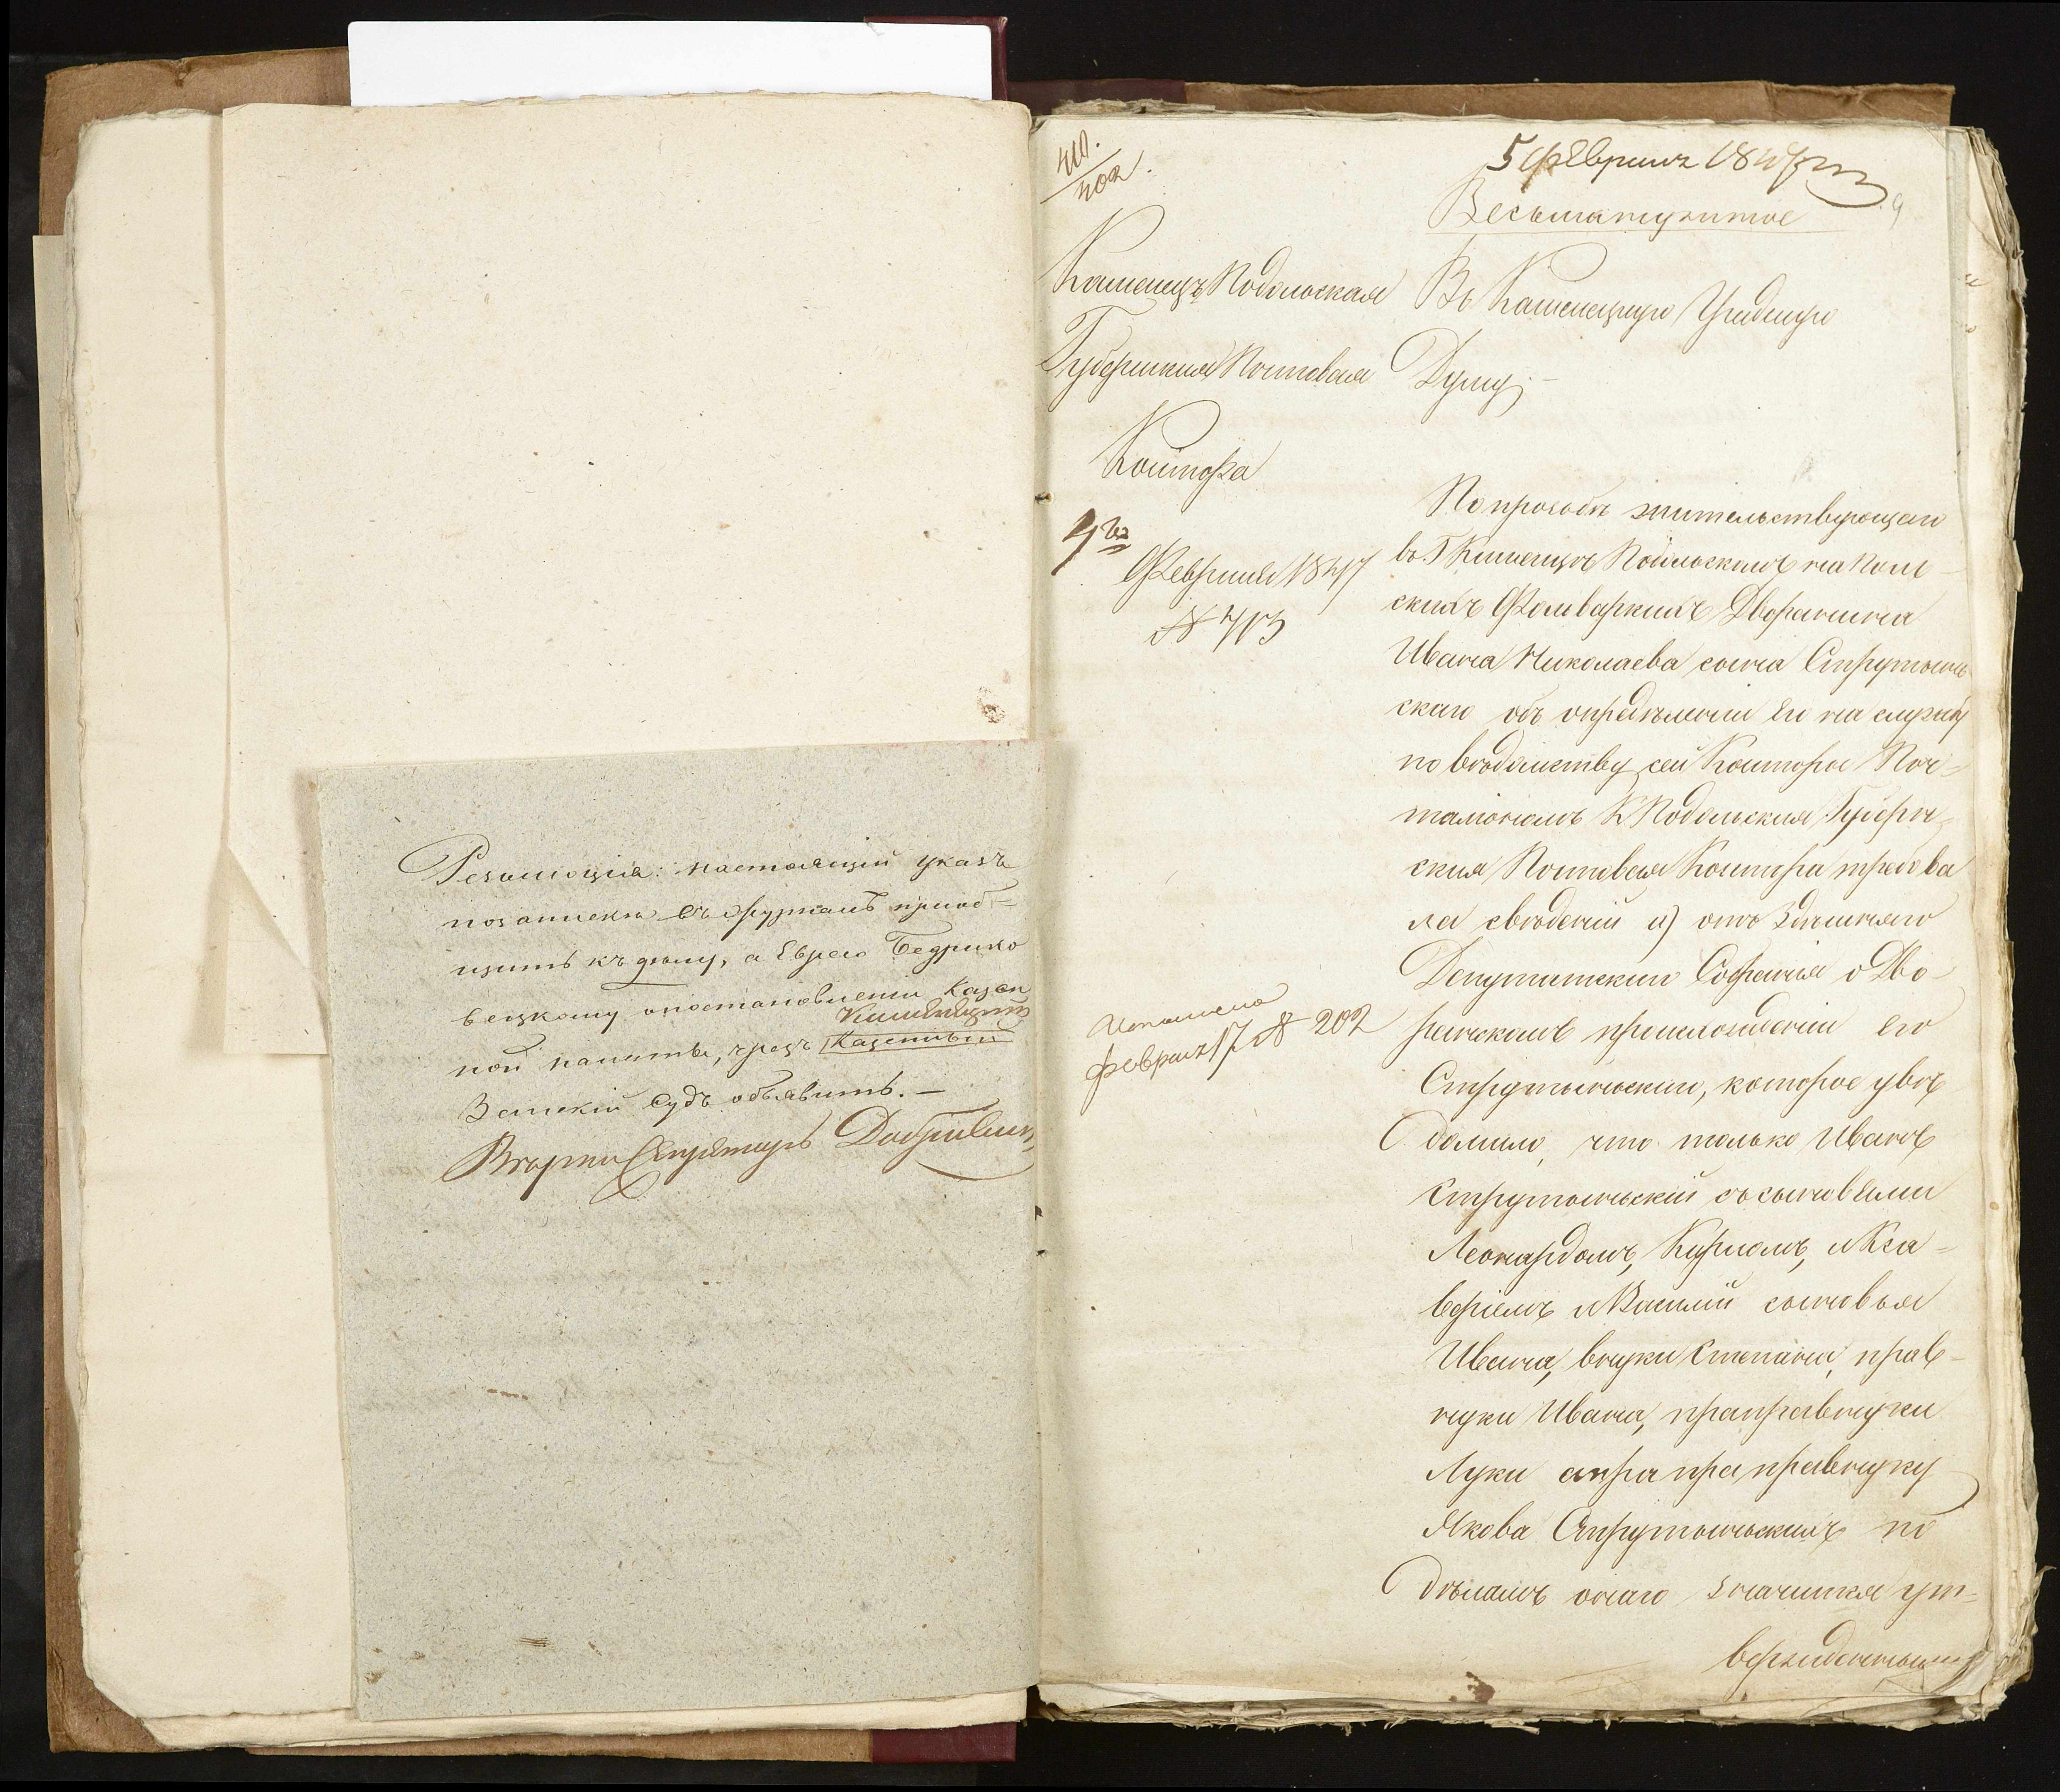 Резолюція: настоящій указъ
позаписки въ журналъ пріоб=
щить къ делу, а Еврею Бедрико
вецкому опостановленіи Казен
Каменецкій
ной палаты, чрезъ Казенный
Земскій Судъ объявить.—
Верно Секретарь
5 февраля 1847
Весьманужное
Каменецъ Подольская
Губернская Почтовая
Контора
4го
Февраля 1847
№ 713
Въ Каменецкую Градскую
Думу.—
По прозьбѣ жительствующаго
въ Г Каменцѣ Подольскомъ на Поль-
скихъ Фольваркахъ Дворянина
Ивана Николаева сына Струтынь
скаго объ опредѣленіи Его на службу
по вѣдомству сей Конторы Поч=
таліономъ К Подольская Губерн=
ская Почтовая Контора требова
ла свѣдѣній а) отъ Здешняго
Депутатскаго Собранія о Дво-
рянскомъ происхожденіи его
Струтынскаго, которое увѣ
домило, что только Иванъ
Струтынскій съ сыновьями
Леонардомъ, Кароломъ, и Кса=
веріемъ и Василій сыновья
Ивана, внуки Степана, прав-
нуки Ивана, праправнуки
Луки а прапраправнуку
Якова Струтынскихъ по
дѣламъ онаго значится ут=
вержденными
Исполнено
февраля 17 № 202